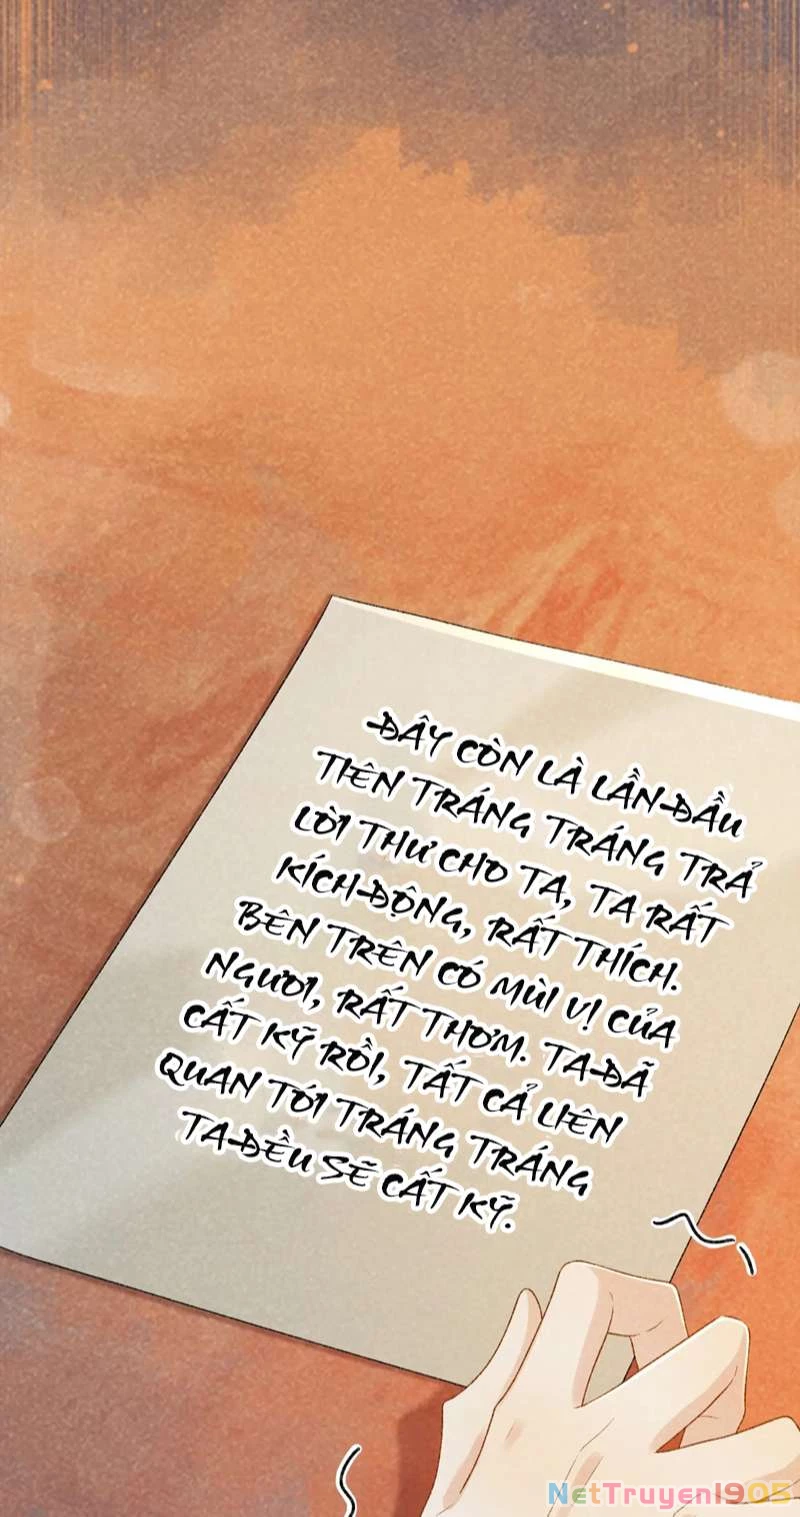 ĐÂY CÒN LÀ LẦN ĐẦU
TIÊN TRÁNG TRÁNG TRẢ
LỜI THƯ CHO TA, TA RẤT
KÍCH ĐỘNG, RẤT THÍCH.
BÊN TRÊN CÓ MÙI VỊ CỦA
NGƯƠI, RẤT THƠM. TA ĐÃ
CẤT KỸ RỒI, TẤT CẢ LIÊN
QUAN TỚI TRÁNG TRÁNG
TA ĐỀU SẼ CẤT KỸ.
NetTruyen1905